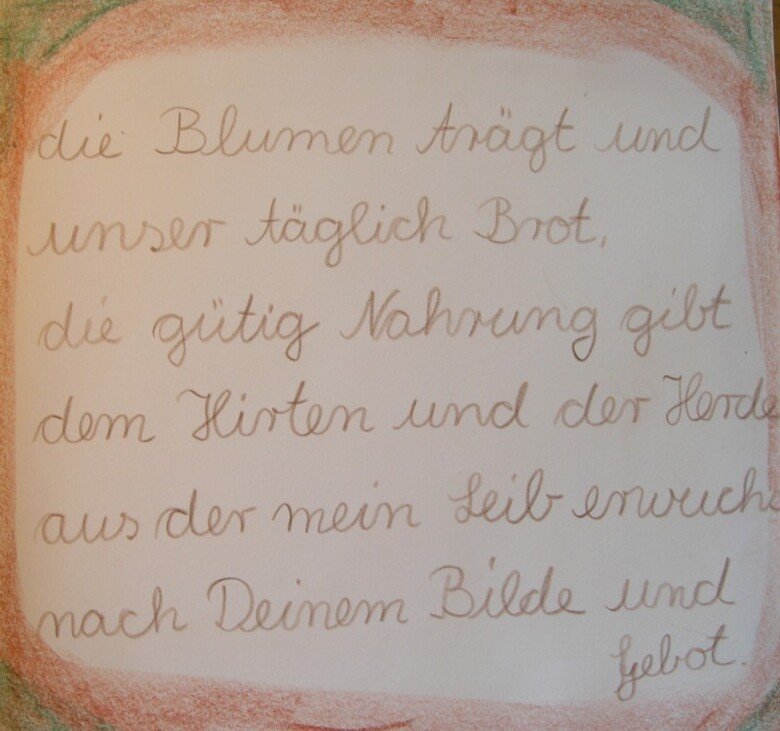 die Blumen trägt und
unser täglich Brot,
die gütig Nahrung gibt
dem Hirten und der Herde
aus der mein Leib erwuchs
nach Deinem Bilde und
Gebot.